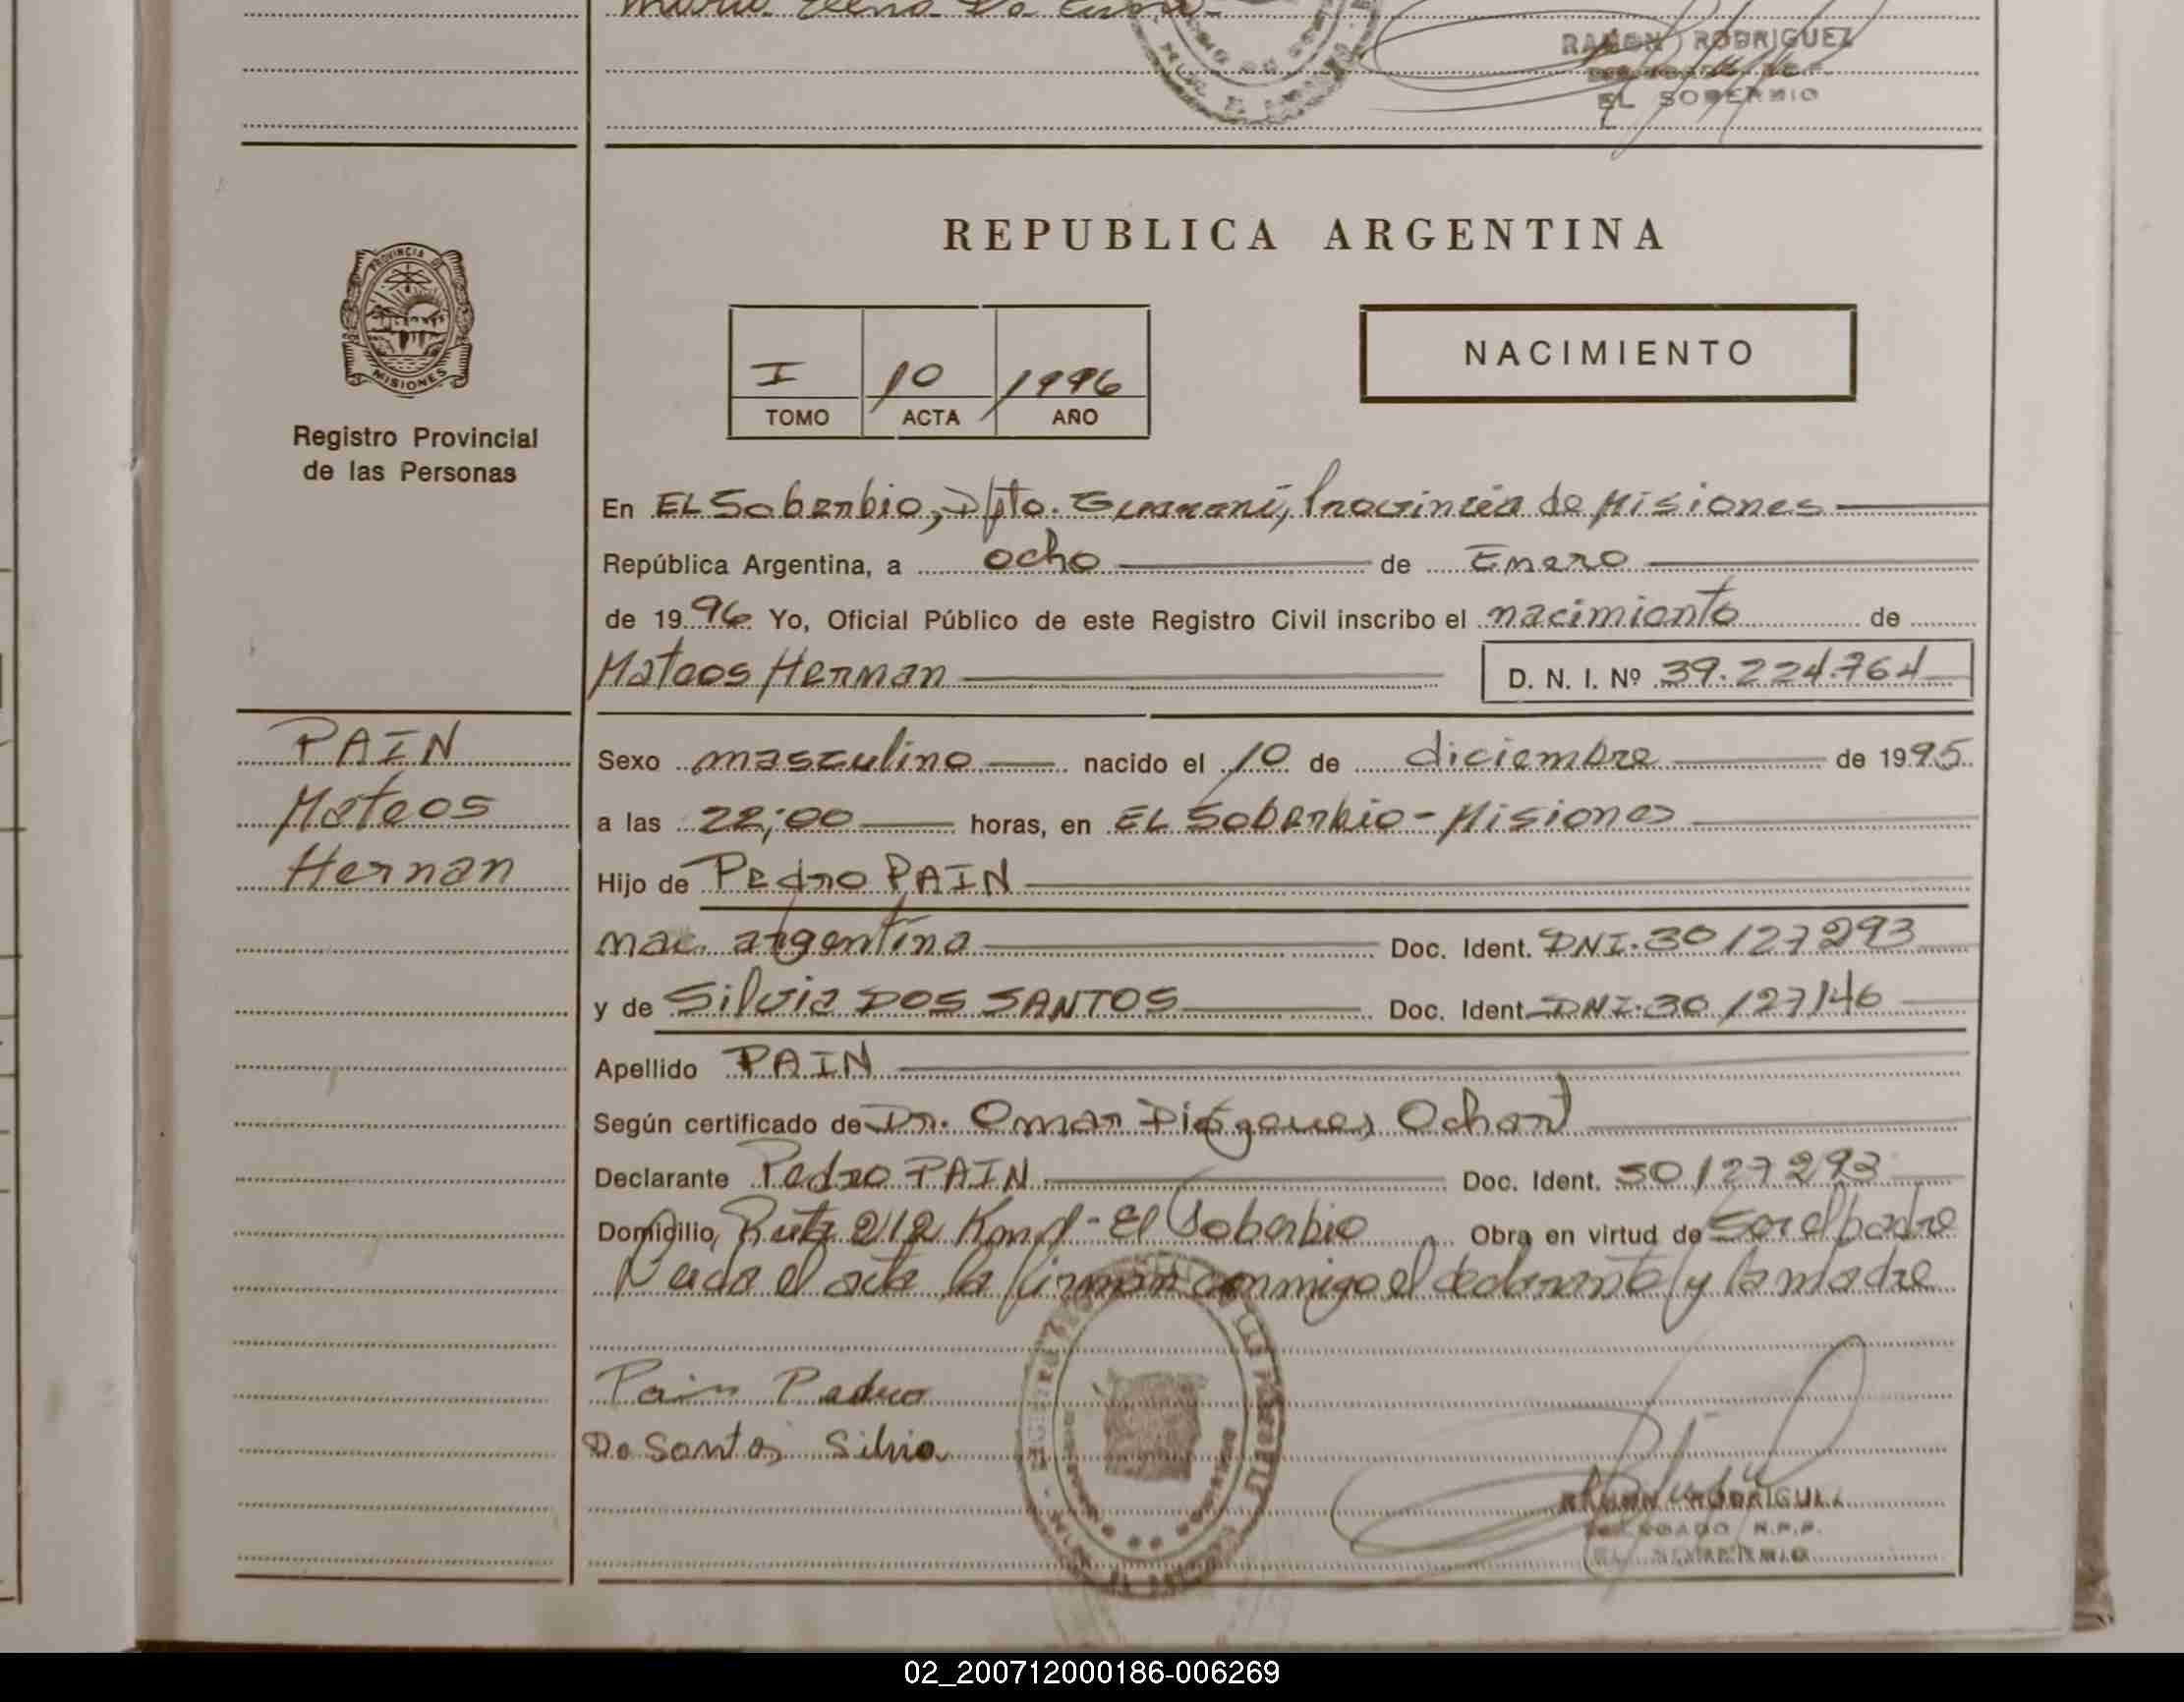 RAMON RODRIGUEZ
EL SOBERBIO
REPUBLICA ARGENTINA
PROVINCIA DE
MISIONES
Registro Provincial
de las Personas
I 10 1996
TOMO ACTA AÑO
NACIMIENTO
En EL Soberbio, Dpto. Guaraní, Provincia de Misiones
República Argentina, a ocho de Enero
de 1996 Yo, Oficial Público de este Registro Civil inscribo el nacimiento de
Mateos Hernan D. N. I. Nº 39.224.764
PAIN
Mateos
Hernan
Sexo masculino nacido el 10 de diciembre de 1995
a las 22;00 horas, en EL Soberbio - Misiones
Hijo de Pedro PAIN
nac. argentina Doc. Ident. DNI.30127293
y de Silvia DOS SANTOS Doc. Ident. DNI.30127146
Apellido PAIN
Según certificado de Dr. Omar Diógenes Ochart
Declarante Pedro PAIN Doc. Ident. 30127293
Domicilio, Ruta 212 Km - El Soberbio Obra en virtud de Ser el padre
el acta la firman conmigo el declarante y la madre
Pain Pedro
Do Santos Silvia
RAMON RODRIGUEZ
DELEGADO R.P.P.
EL SOBERBIO
02_200712000186-006269